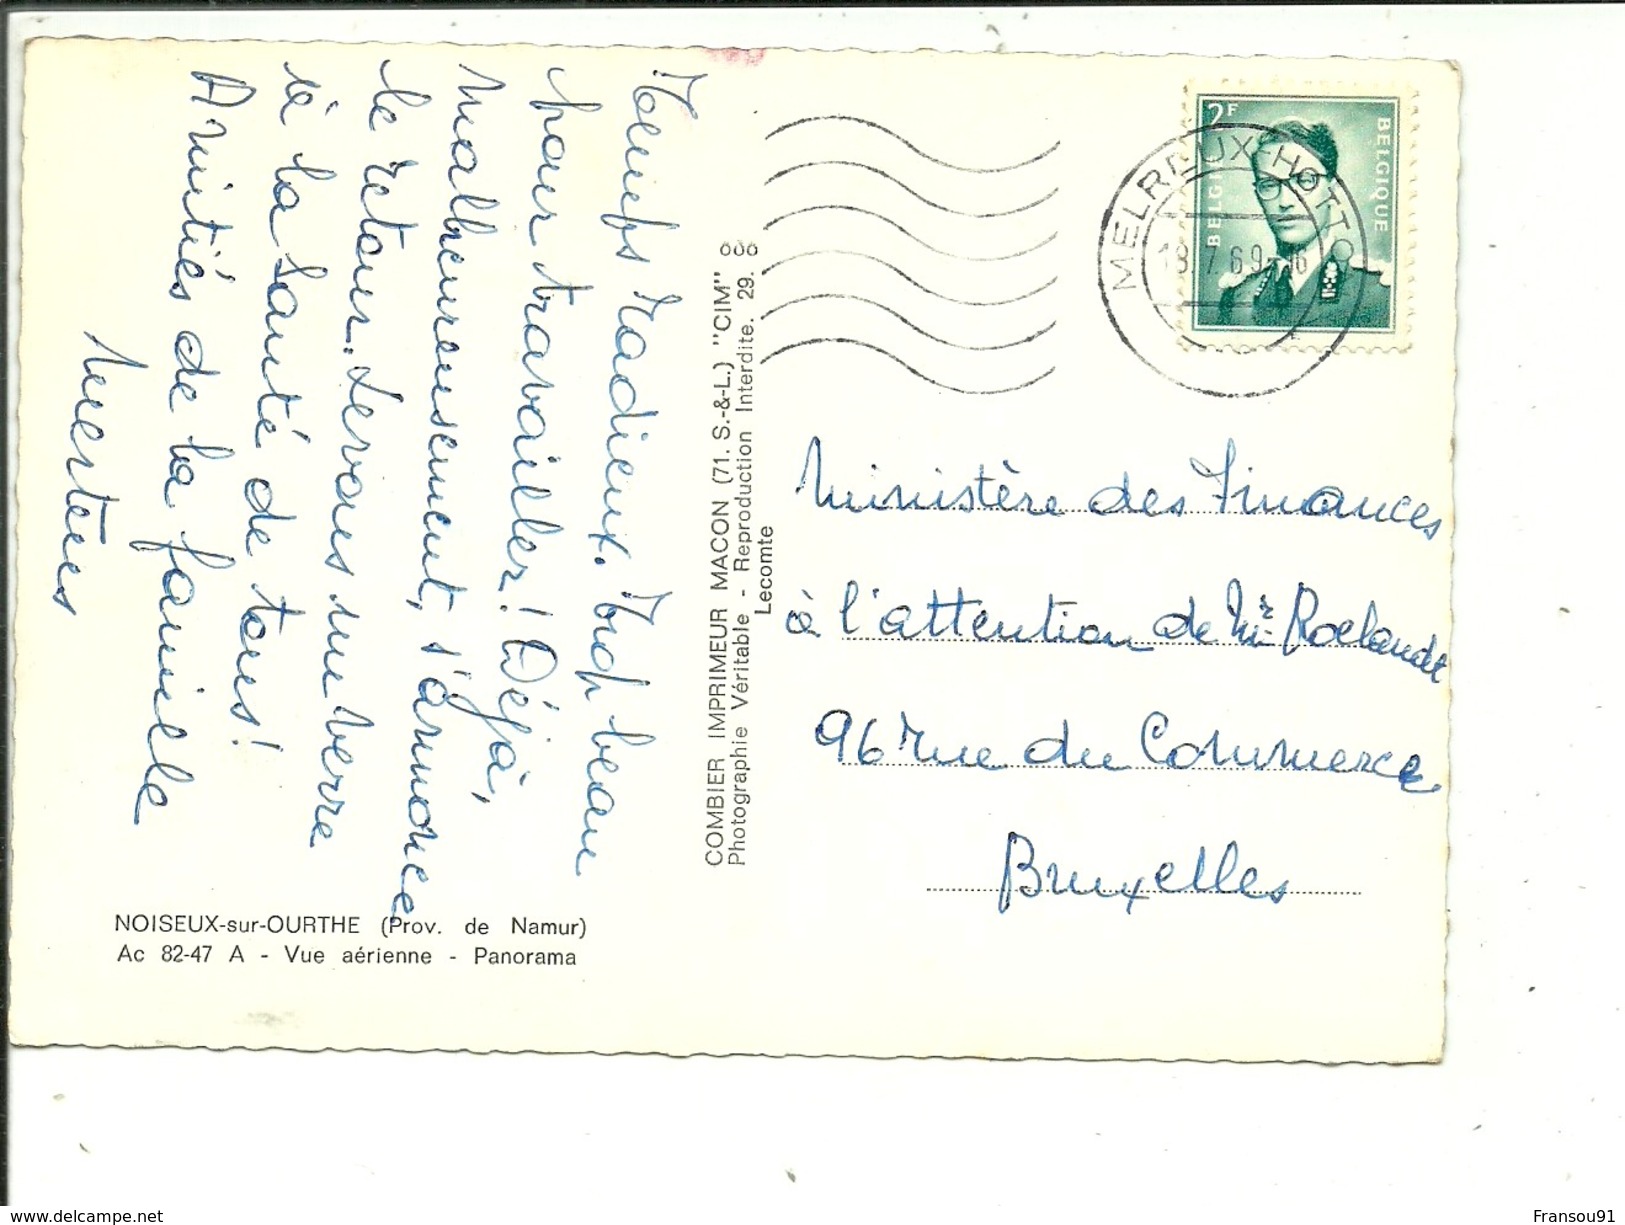 Temps radieux. Trop beau
pour travailler! Déjà,
malheureusement, s'annonce
le retour. Levons un verre
à la santé de tous!
Amitiés de la famille
Mertens
NOISEUX-sur-OURTHE (Prov. de Namur)
Ac 82-47 A - Vue aérienne - Panorama
COMBIER IMPRIMEUR MACON (71. S.-&-L.) "CIM"
Photographie Véritable - Reproduction Interdite. 29.
Lecomte
2F
BELGIQUE
BELGIË
MELREUX-HOTTON
18.7.69-16
Ministère des Finances
à l'attention de Mr Roelandt
96 rue du Commerce
Bruxelles
www.delcampe.net
Fransou91